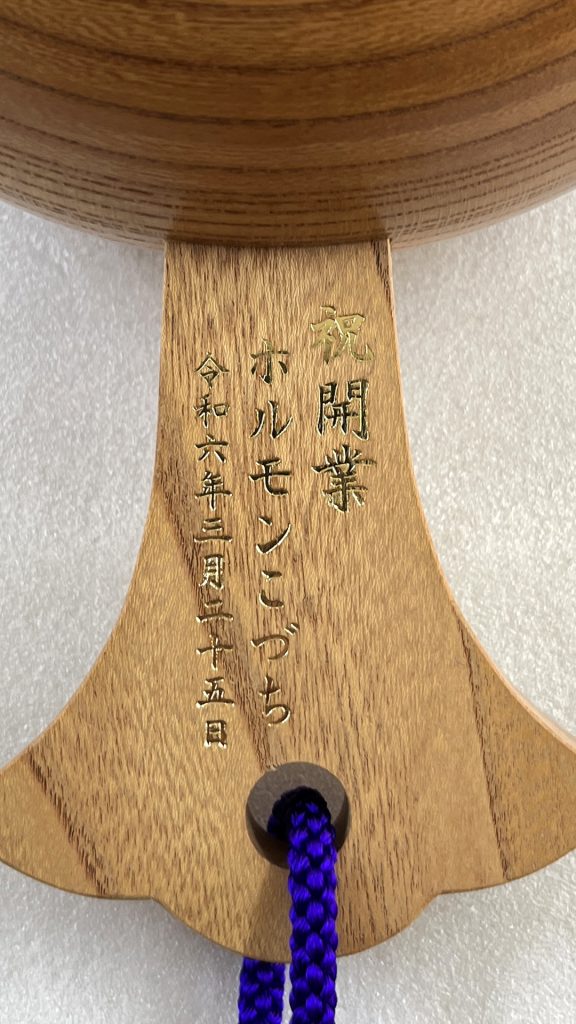 祝開業
ホルモンこづち
令和六年三月二十五日